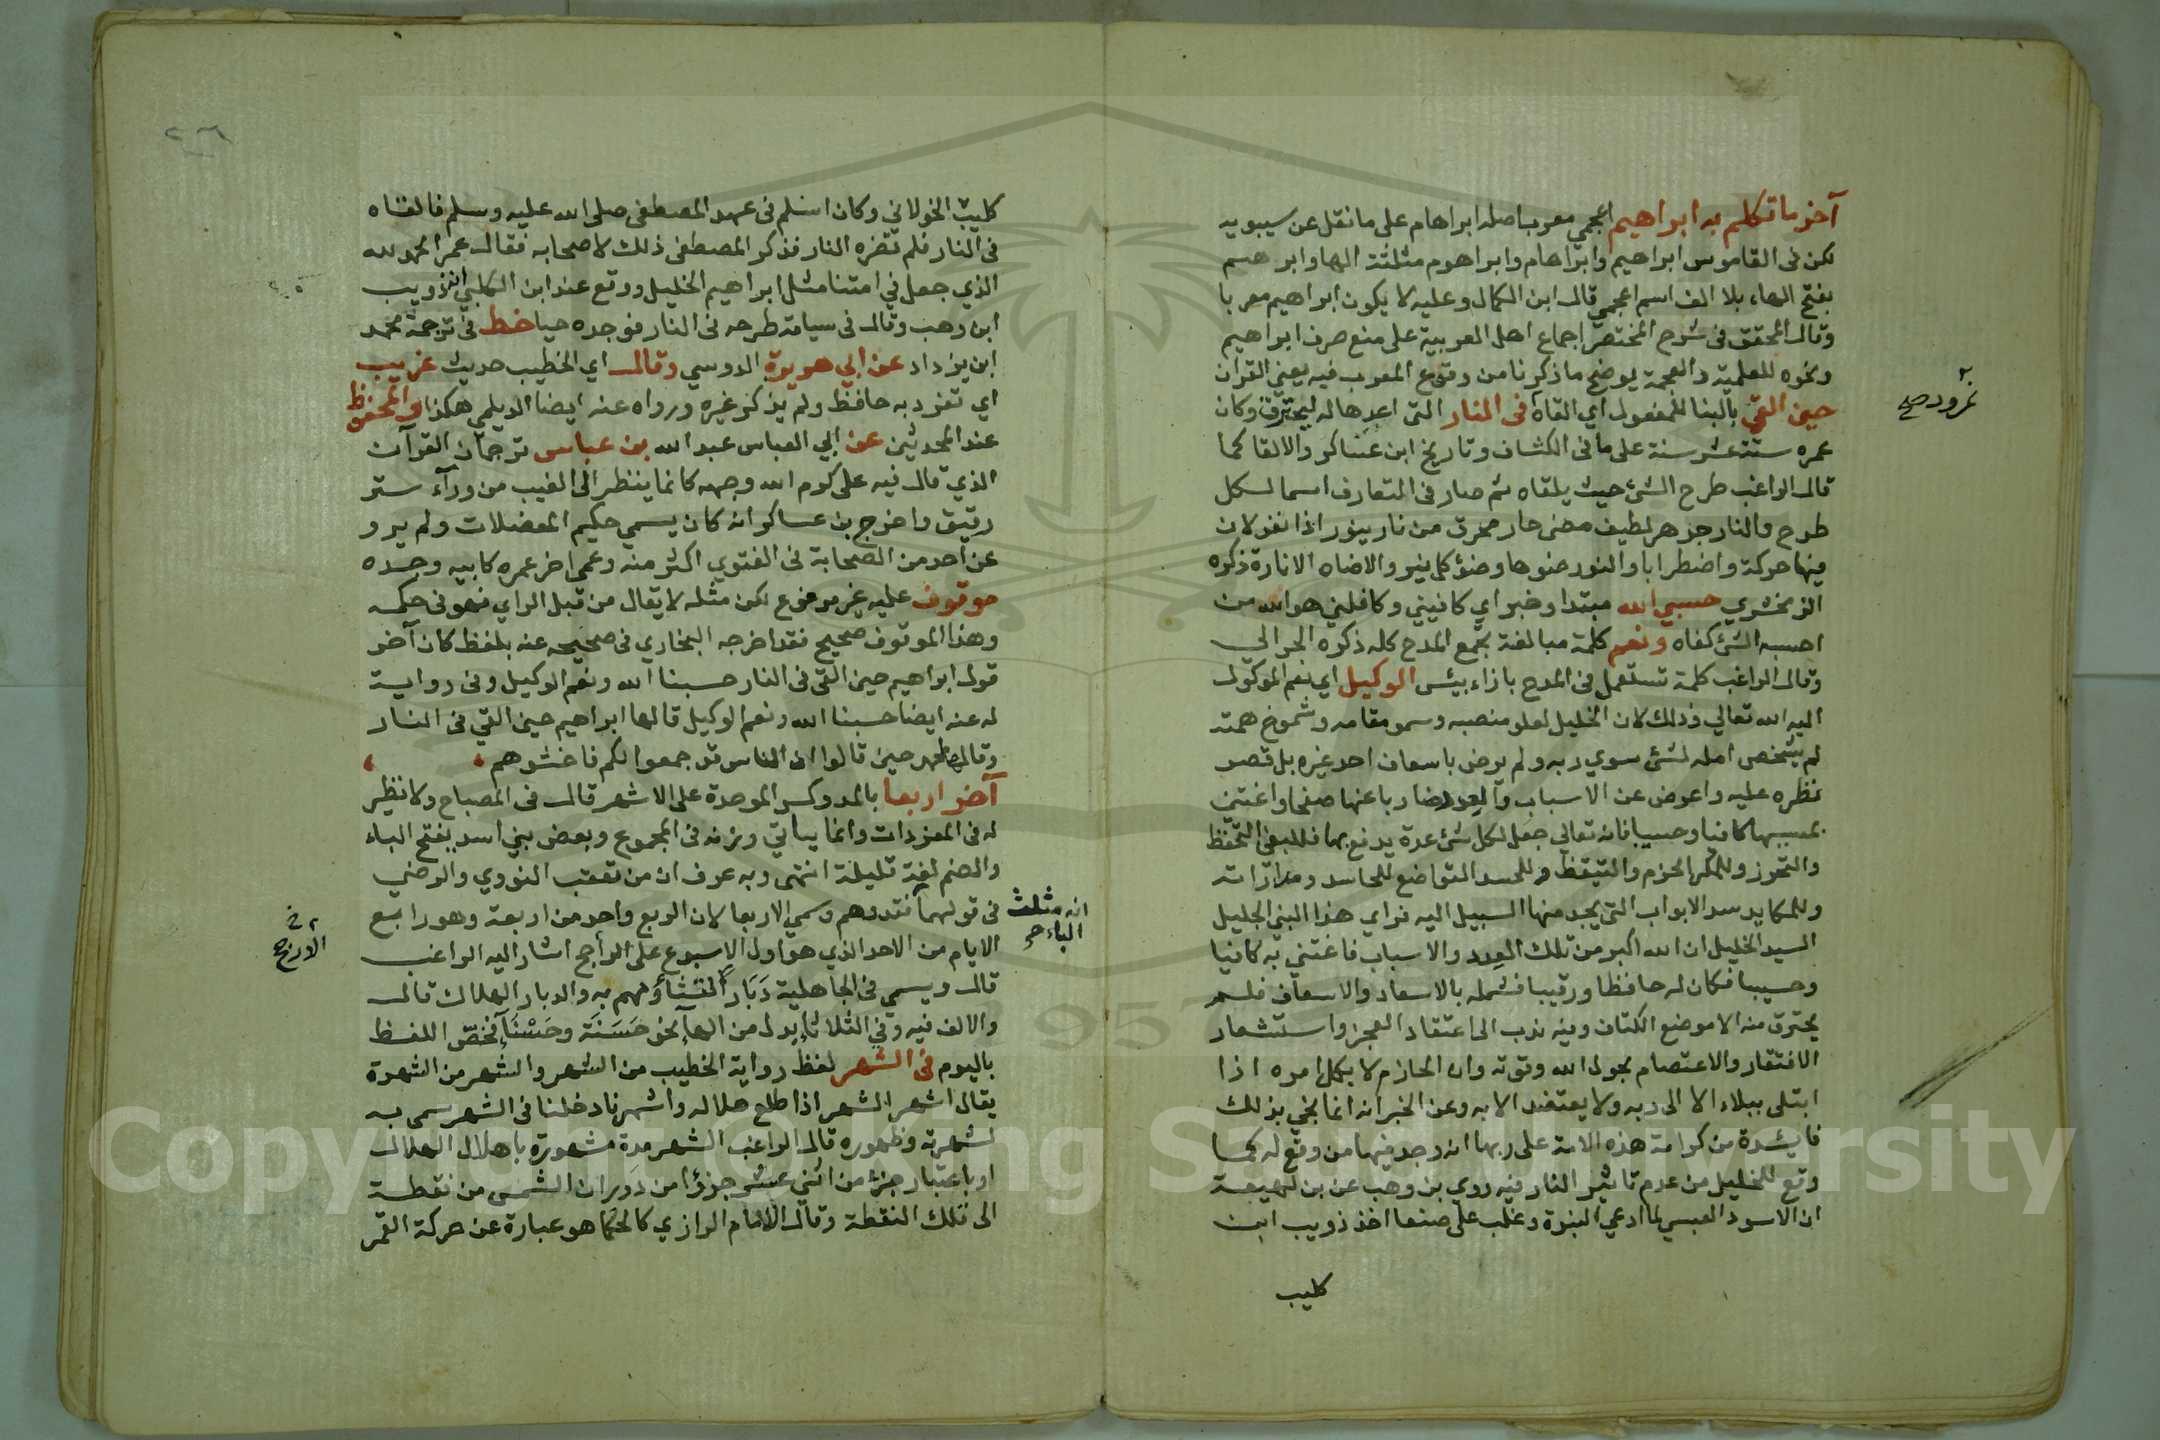 آخر ما تكلم به ابراهيم اعجمي معرب اصله ابراهام على ما نقل عن سيبويه
لكن في القاموس ابراهيم وابراهام وابراهوم مثلثة الهاء وابرهم
بفتح الهاء بلا الف اسم اعجمي قال ابن الكمال وعليه لا يكون ابراهيم معربا
وقال المحقق في شرح المختصر اجماع اهل العربية على منع صرف ابراهيم
ونحوه للعلمية والعجمة يوضح ما ذكرنا من وقوع المعرب فيه يعني القرآن
حين القي بالبنا للمفعول اي القاه في النار التي اعدها له ليحترق وكان
نمرود صح
عمره ستة عشر سنة على ما في الكشاف وتاريخ ابن عساكر والالقا كما
قال الراغب طرح الشئ حيث يلقاه ثم صار في المتعارف اسما لكل
طرح والنار جوهر لطيف مضئ حار محرق من نار ينور اذا نفر لان
فيها حركة واضطرابا والنور ضوها وضؤ كل نير والاضاه الانارة ذكره
الزمخشري حسبي الله مبتدا وخبر اي كافيني وكافلني هو الله من
احسبه الشئ كفاه ونعم كلمة مبالغة بجمع المدح كله ذكره الحرالي
وقال الراغب كلمة تستعمل في المدح بازاء بيئس الوكيل اي نعم الموكول
اليه الله تعالي وذلك لان الخليل لعلو منصبه وسمو مقامه وشموخ همته
لم يشخص امله لشئ سوي ربه ولم يرض باسعاف احد غيره بل قصر
نظره عليه واعرض عن الاسباب والعدد ضاربا عنها صفحا واغتني
بمسببها كافيا وحسيبا فانه تعالي جعل لكل شئ عدة يدفع بها فللبغي التحفظ
والتحرز وللمكر الحزم والتيقظ وللحسد المتواضع للحاسد ومداراته
وللمكايد سد الابواب التي يجد منها السبيل اليه فراي هذا النبي الجليل
السيد الخليل ان الله اكبر من تلك العدد والاسباب فاغتني به كافيا
وحسيبا فكان له حافظا ورقيبا فشمله بالاسعاد والاسعاف فلم
يحترق منه الا موضع الكتاف وفيه ندب الى اعتقاد العجز واستشعار
الافتقار والاعتصام بحول الله وقوته وان الحازم لا يكل امره اذا
ابتلى ببلاء الا الى ربه ولا يعتضد الا به وعن الخبر انه انما نجي بذلك
فايدة من كرامة هذه الامة على ربها انه وجد فيها من وقع له كما
وقع للخليل من عدم تاثير النار فيه روي بن وهب عن بن لهيعة
ان الاسود العبسي لما ادعي النبوة وغلب على صنعا اخذ ذويب ابن
كليب
٢٦
كليب الخولاني وكان اسلم في عهد المصطفى صلى الله عليه وسلم فالقاه
في النار فلم تضره النار فذكر المصطفى ذلك لاصحابه فقال عمر الحمد لله
الذي جعل في امتنا مثل ابراهيم الخليل ووقع عند ابن الكلبي انه ذويب
ابن وهب وقال في سياقه طرحه في النار فوجده حيا خط في ترجمة محمد
ابن يزداد عن ابي هريرة الدوسي وقال اي الخطيب حديث غريب
اي تفرد به حافظ ولم يذكره غيره ورواه عنه ايضا الديلمي هكذا والمحفوظ
عند المحدثين عن ابي العباس عبد الله بن عباس ترجمان القرآن
الذي قال فيه على كرم الله وجهه كانما ينظر الى الغيب من ورآء ستر
رقيق واخرج بن عساكر انه كان يسمي حكيم المعضلات ولم يرو
عن احد من الصحابة في الفتوي اكثر منه وعمي اخر عمره كابيه وجده
موقوف عليه غير مرفوع لكن مثله لا يقال من قبل الراي فهو في حكمه
وهذا الموقوف صحيح فقد اخرجه البخاري في صحيحه عنه بلفظ كان آخر
قول ابراهيم حين القي في النار حسبنا الله ونعم الوكيل وفي رواية
له عنه ايضا حسبنا الله ونعم الوكيل قالها ابراهيم حين القي في النار
وقالها محمد حين قالوا ان الناس قد جمعوا لكم فاخشوهم
آخر اربعا بالمد وكسر الموحدة على الاشهر قال في المصباح ولا نظير
له في المفردات وانما ياتي وزنه في الجموع وبعض بني اسد يفتح الباء
والضم لغة قليلة انتهى وبه عرف ان من تعقب النووي والرضي
في قولهما فقد وهم وسمي الاربعا لان الربع واحد من اربعة وهو رابع
انه مثلث الباء صح
الايام من الاحد الذي هو اول الاسبوع على الراجح اشار اليه الراغب
قال ويسمي في الجاهلية دَبَار لتشاؤمهم به والدبار الهلاك قال
والالف فيه وفي الثلاثا بدل من الهآ نحو حَسَنَة وحَسْنَآ فخص اللفظ
باليوم في الشهر لفظ رواية الخطيب من الشهر والشهر من الشهرة
يقال اشهر الشهر اذا طلع هلاله واشهرنا دخلنا في الشهر سمى به
لشهرته وظهوره قال الراغب الشهر مدة مشهورة باهلال الهلال
او باعتبار جزء من اثني عشر جزؤا من دَوَران الشمس من نقطة
الى تلك النقطة وقال الامام الرازي كالحكما هو عبارة عن حركة القمر